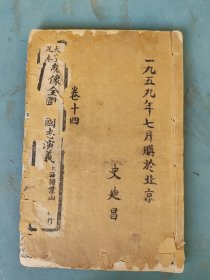 一九五九年七月購於北京
卷十四
史也昌
大字
足本
繡像全圖 國志演義
上海掃葉山 行